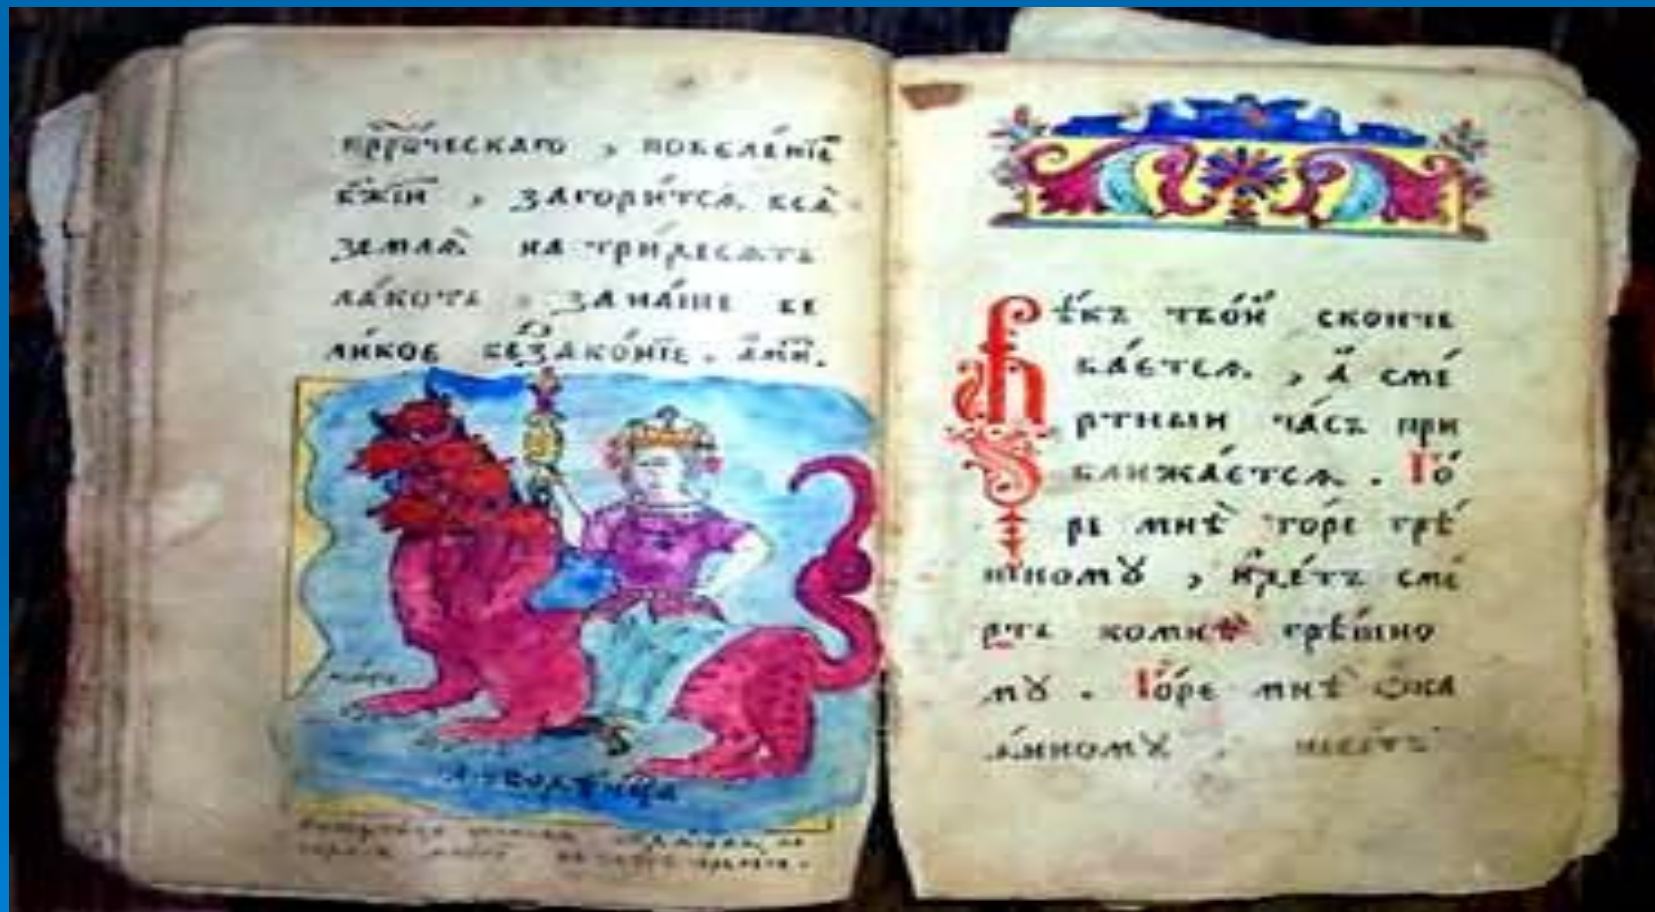 прⷪ҇ро́ческаго , повеле́нїе
бж҃їи , загори́тсѧ всѧ̀
землѧ̀ на три́десѧть
ла́коть , за на́ше ве
ли́кое беззако́нїе . а҆ми́н.
Вѣ́къ тво́й сконче
ва́етсѧ , а҆ сме́
ртныи ча́съ при
ближа́етсѧ . Го́
ре мнѣ̀ го́ре грѣ́
шномꙋ , и҆де́тъ сме́
рть комнѣ̀ грѣ́шно
мꙋ . Го́ре мнѣ̀ ѻ҆ка
ѧ́нномꙋ ,